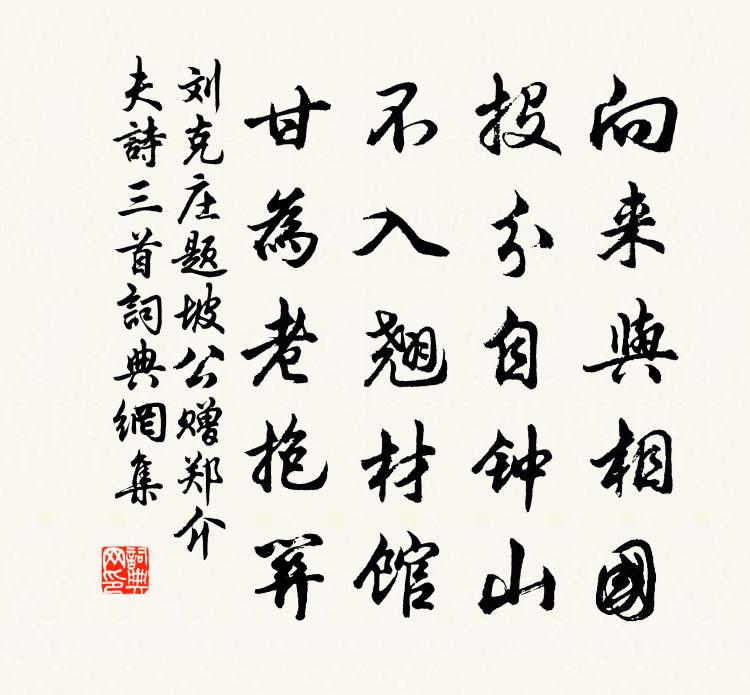 向来與相國
投分自钟山
不入翘材館
甘為老抱关
刘克庄题坡公赠郑介
夫詩三首詞典網集
詞典网印